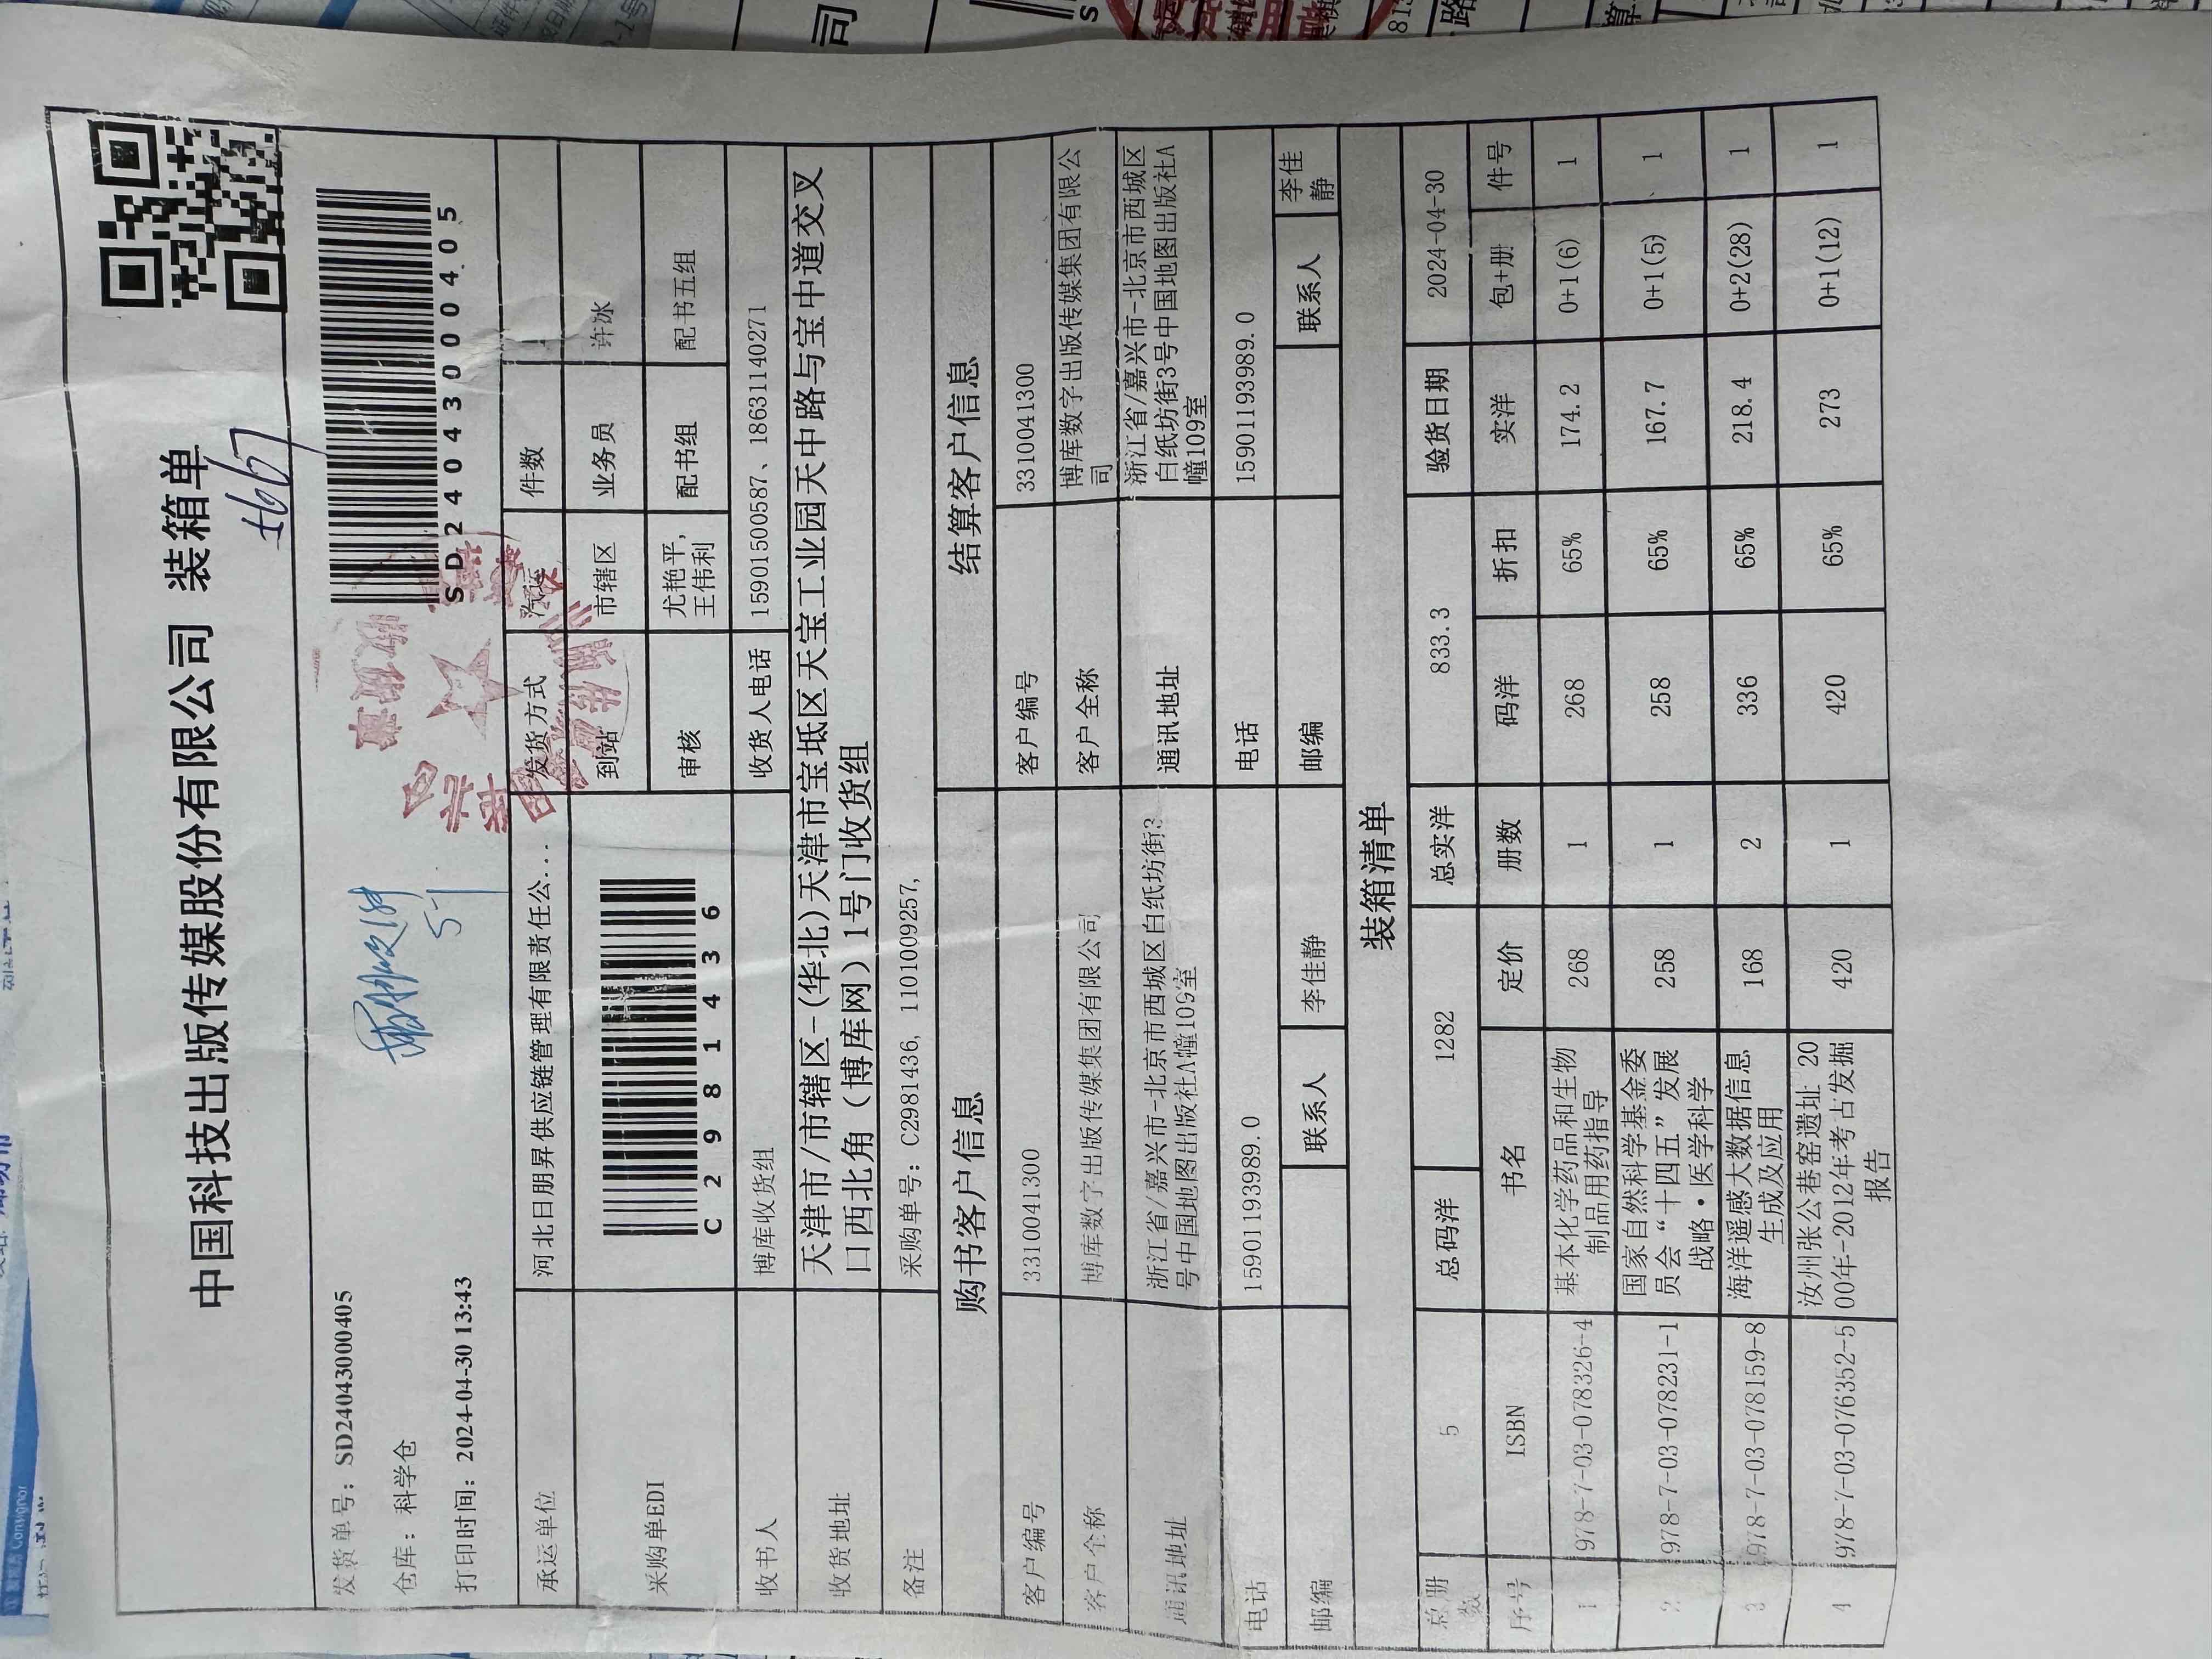 中国科技出版传媒股份有限公司 装箱单
发货单号: SD24043000405
仓库: 科学仓
打印时间: 2024-04-30 13:43
SD24043000405
5-1
承运单位 河北日朋昇供应链管理有限责任公... 发货方式 汽运 件数
采购单EDI C2981436 到站 市辖区 业务员 许冰
审核 尤艳平, 王伟利 配书组 配书五组
收书人 博库收货组 收货人电话 15901500587、18631140271
收货地址 天津市/市辖区-(华北)天津市宝坻区天宝工业园天中路与宝中道交叉
口西北角（博库网）1号门收货组
备注 采购单号: C2981436, 1101009257,
购书客户信息 结算客户信息
客户编号 3310041300 客户编号 3310041300
客户全称 博库数字出版传媒集团有限公司 客户全称 博库数字出版传媒集团有限公司
通讯地址 浙江省/嘉兴市-北京市西城区白纸坊街3号中国地图出版社A幢109室 通讯地址 浙江省/嘉兴市-北京市西城区白纸坊街3号中国地图出版社A幢109室
电话 15901193989.0 电话 15901193989.0
邮编 联系人 李佳静 邮编 联系人 李佳静
装箱清单
总册数 5 总码洋 1282 总实洋 833.3 验货日期 2024-04-30
序号 ISBN 书名 定价 册数 码洋 折扣 实洋 包+册 件号
1 978-7-03-078326-4 基本化学药品和生物制品用药指导 268 1 268 65% 174.2 0+1(6) 1
2 978-7-03-078231-1 国家自然科学基金委员会“十四五”发展战略·医学科学 258 1 258 65% 167.7 0+1(5) 1
3 978-7-03-078159-8 海洋遥感大数据信息生成及应用 168 2 336 65% 218.4 0+2(28) 1
4 978-7-03-076352-5 汝州张公巷窑遗址 2000年-2012年考古发掘报告 420 1 420 65% 273 0+1(12) 1